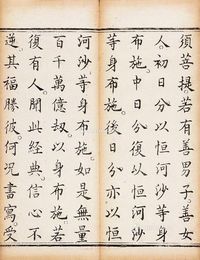 須菩提。若有善男子。善女
人。初日分以恒河沙等身
布施。中日分復以恒河沙
等身布施。後日分亦以恒
河沙等身布施。如是無量
百千萬億劫以身布施。若
復有人。聞此經典。信心不
逆。其福勝彼。何況書寫。受